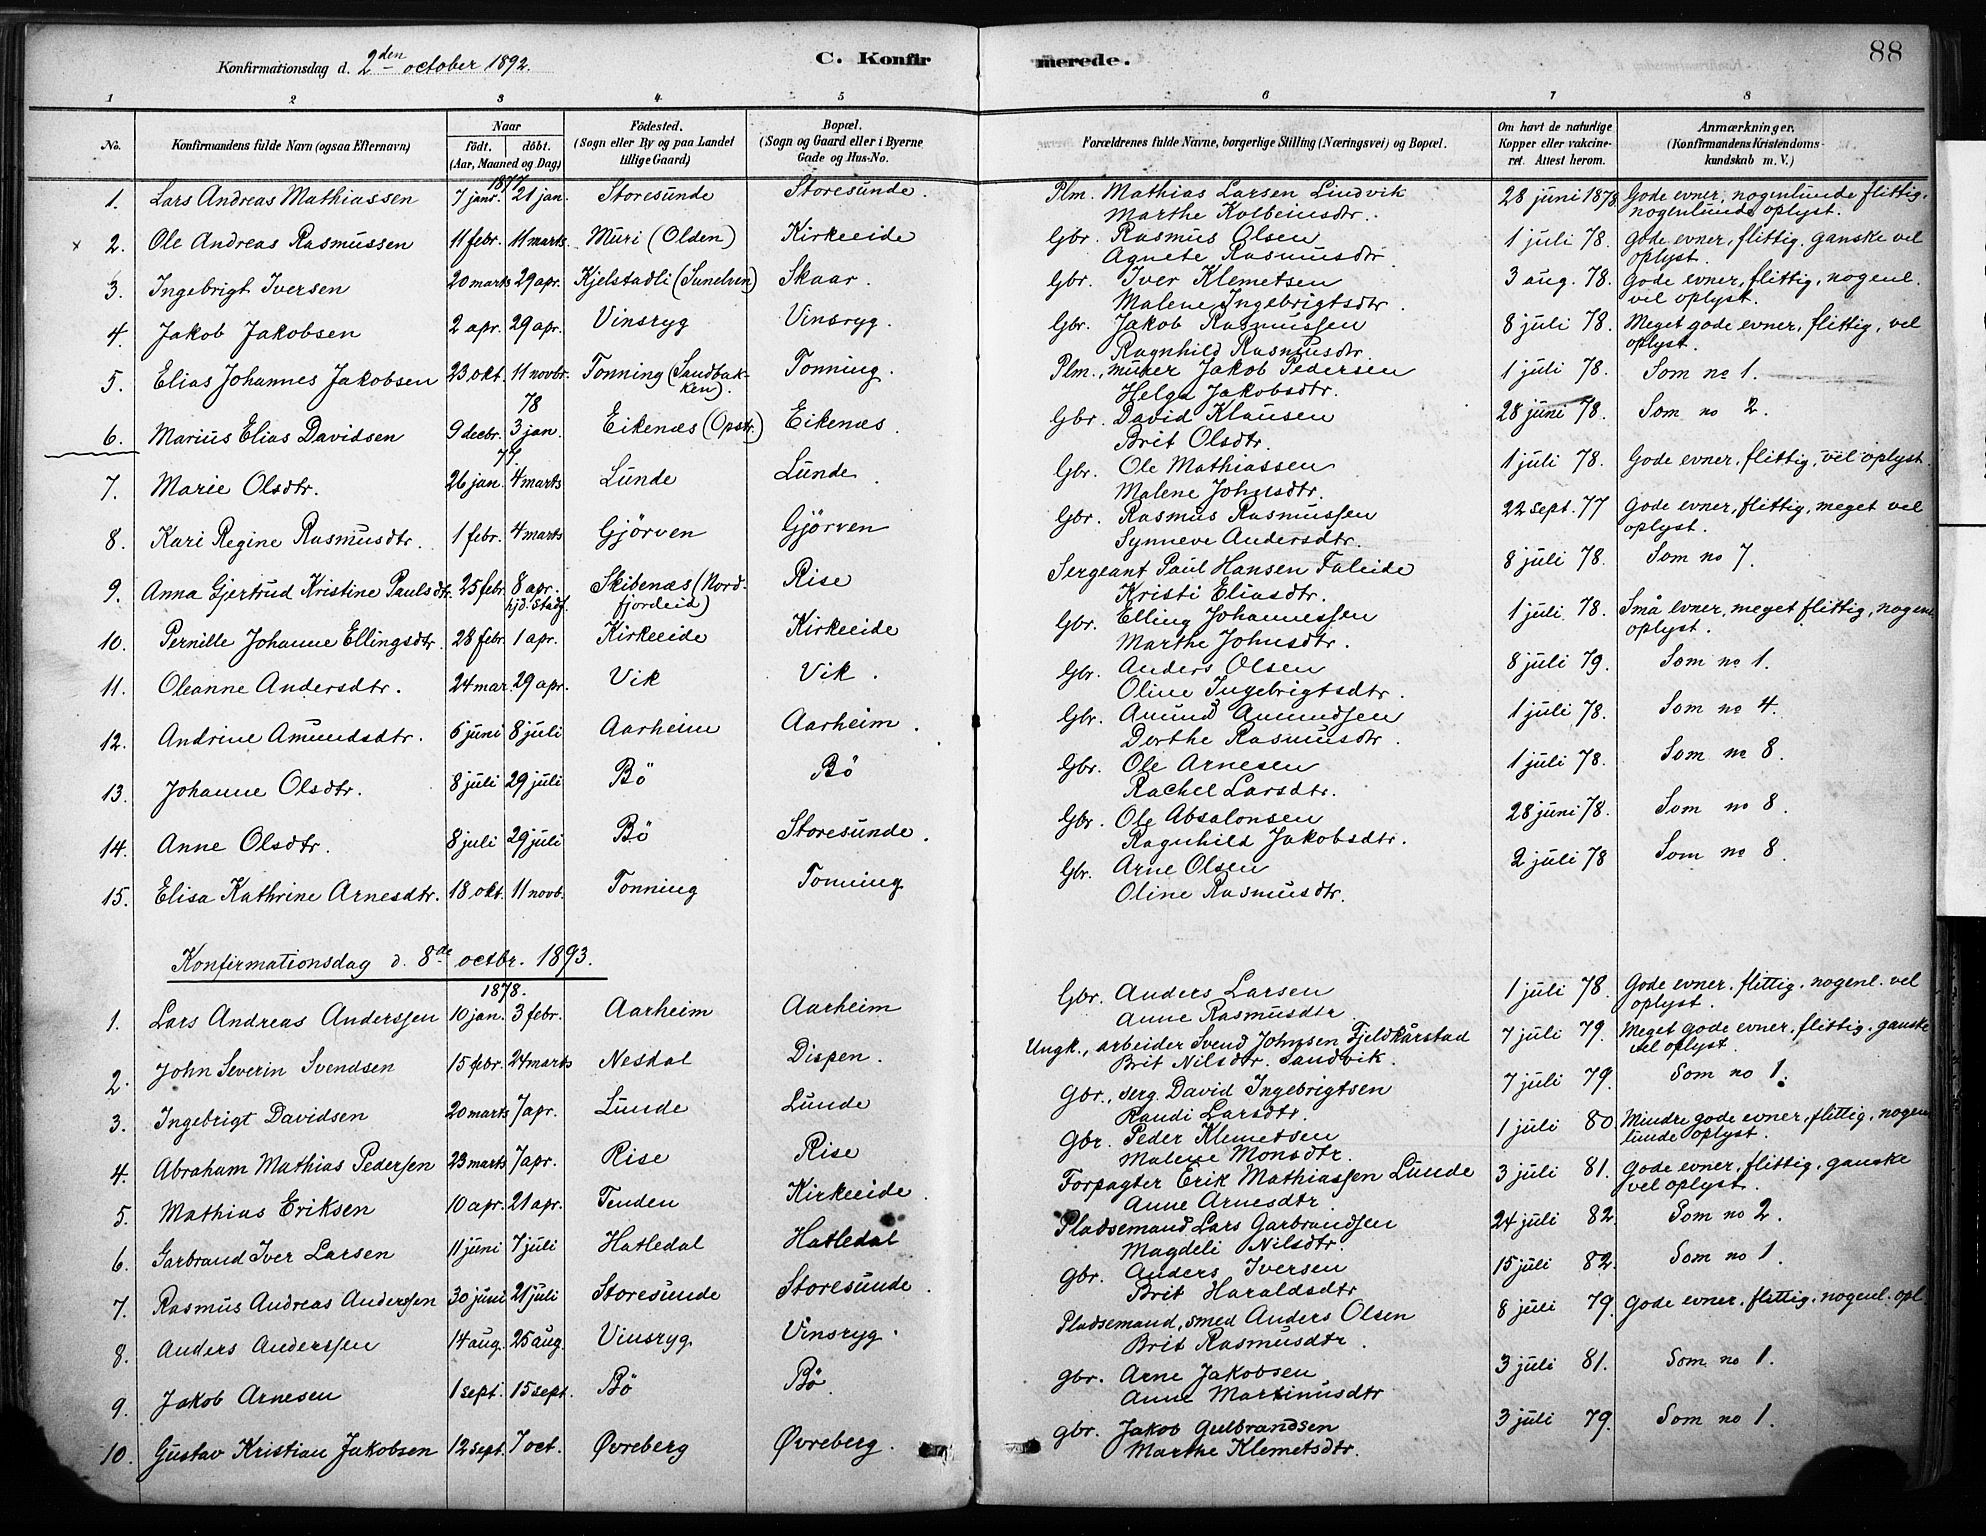 Konfirmationsdag d. 2den october 1892.
C. Konfirmerede.
88
1 2 3 4 5 6 7 8
No.
Konfirmandens fulde Navn (ogsaa Efternavn)
Naar
født. døbt.
(Aar, Maaned og Dag)
Fødested.
(Sogn eller By og paa Landet tillige Gaard)
Bopæl.
(Sogn og Gaard eller i Byerne Gade og Hus-No.
Forældrenes fulde Navne, borgerlige Stilling (Næringsvei) og Bopæl.
Om havt de naturlige Kopper eller vakcineret. Attest herom.
Anmærkninger.
(Konfirmandens Kristendomskundskab m. V.)
1877
1. Lars Andreas Mathiassen 7 janr. 21 jan. Storesunde Storesunde. Plm. Mathias Larsen Lindvik 28 juni 1878. Gode evner, nogenlunde flittig,
Marthe Kolbeinsdtr. nogenlunde oplyst.
x 2. Ole Andreas Rasmussen 11 febr. 11 marts Muri (Olden) Kirkeeide Gbr. Rasmus Olsen 1 juli 78. Gode evner, flittig, ganske vel
Agnete Rasmusdtr. oplyst.
3. Ingebrigt Iversen 20 marts 29 apr. Kjelstadli (Sunelven) Skaar. Gbr. Iver Klemetsen 3 aug. 78. Gode evner, flittig, nogenl.
Malene Ingebrigtsdtr. vel oplyst.
4. Jakob Jakobsen 2 apr. 29 apr. Vinsryg Vinsryg. Gbr. Jakob Rasmussen 8 juli 78. Meget gode evner, flittig, vel
Ragnhild Rasmusdtr. oplyst.
5. Elias Johannes Jakobsen 23 okt. 11 novbr. Tonning (Sandbakken). Tonning. Plm., murer Jakob Pedersen 1 juli 78. Som no 1.
Helga Jakobsdtr.
78
6. Marius Elias Davidsen 9 decbr. 3 jan. Eikenæs (Opstr.) Eikenæs. Gbr. David Klausen 28 juni 78. Som no 2.
Brit Olsdtr.
77.
7. Marie Olsdtr. 26 jan. 4 marts Lunde Lunde. Gbr. Ole Mathiassen 1 juli 78. Gode evner, flittig, vel oplyst.
Malene Johnsdtr.
8. Kari Regine Rasmusdtr. 1 febr. 4 marts Gjörven Gjörven Gbr. Rasmus Rasmussen 22 sept. 77 Gode evner, flittig, meget vel
Synneve Andersdtr. oplyst.
9. Anna Gjertrud Kristine Paulsdtr. 25 febr. 8 apr. hjd. Stadf. Skibenæs (Nordfjordeid) Rise Sergeant Paul Hansen Faleide 8 juli 78. Som no 7.
Kristi Eliasdtr.
10. Pernille Johanne Ellingsdtr. 28 febr. 1 apr. Kirkeeide Kirkeeide Gbr. Elling Johannessen 1 juli 78. Små evner, meget flittig, nogenl.
Marthe Johnsdtr. oplyst.
11. Oleanne Andersdtr. 24 mar. 29 apr. Vik Vik. Gbr. Anders Olsen 8 juli 79. Som no 1.
Oline Ingebrigtsdtr.
12. Andrine Amundsdtr. 6 juni 8 juli Aarheim Aarheim. Gbr. Amund Amundsen 1 juli 78. Som no 4.
Dorthe Rasmusdtr.
13. Johanne Olsdtr. 8 juli 29 juli Bö Bö Gbr. Ole Arnesen 1 juli 78. Som no 8.
Rachel Larsdtr.
14. Anne Olsdtr. 8 juli 29 juli Bö Storesunde. Gbr. Ole Absalonsen 28 juni 78. Som no 8.
Ragnhild Jakobsdtr.
15. Elisa Kathrine Arnesdtr. 18 okt. 11 novb. Tonning Tonning Gbr. Arne Olsen 2 juli 78 Som no 8.
Oline Rasmusdtr.
Konfirmationsdag d. 8de octbr. 1893.
1878.
1. Lars Andreas Anderssen 10 jan. 3 febr. Aarheim Aarheim Gbr. Anders Larsen 1 juli 78. Gode evner, flittig, nogenl. vel
Anne Rasmusdtr oplyst.
2. John Severin Svendsen 15 febr. 24 marts Nesdal Dispen. Ungk., arbeider Svend Johnsen Fjeldkårstad 7 juli 79. Meget gode evner, flittig, ganske
Brit Nilsdtr. Sandvik. vel oplyst.
3. Ingebrigt Davidsen 20 marts 7 apr. Lunde Lunde Gbr., serg. David Ingebrigtsen 7 juli 79. Som no 1.
Randi Larsdtr.
4. Abraham Mathias Pedersen 23 marts 7 apr. Rise Rise Gbr. Peder Klemetsen 1 juli 80. Mindre gode evner, flittig, nogenlunde oplyst.
Malene Monsdtr.
5. Mathias Eriksen 10 apr. 21 apr. Tenden Kirkeeide. Forpagter Erik Mathiassen Lunde 3 juli 81. Gode evner, flittig, ganske
Anne Arnesdtr vel oplyst.
6. Garbrand Iver Larsen 11 juni 7 juli Hatledal Hatledal Pladsemand Lars Garbrandsen 24 juli 82. Som no 2.
Magdeli Nilsdtr.
7. Rasmus Andreas Anderssen 30 juni 21 juli Storesunde Storesunde. Gbr. Anders Iversen 15 juli 82. Som no 1.
Brit Haraldsdtr
8. Anders Anderssen 14 aug. 25 aug. Vinsryg Vinsryg. Pladsemand, smed Anders Olsen 8 juli 79. Gode evner, flittig, nogenl. opl.
Brit Rasmusdtr.
9. Jakob Arnesen 1 sept. 15 sept. Bö Bö. gbr. Arne Jakobsen 3 juli 81. Som no 1.
Anne Martinusdtr
10. Gustav Kristian Jakobsen 12 sept. 7 oct. Øvreberg Øvreberg. gbr. Jakob Gulbrandsen 3 juli 79. Som no 1.
Marthe Klemetsdtr.